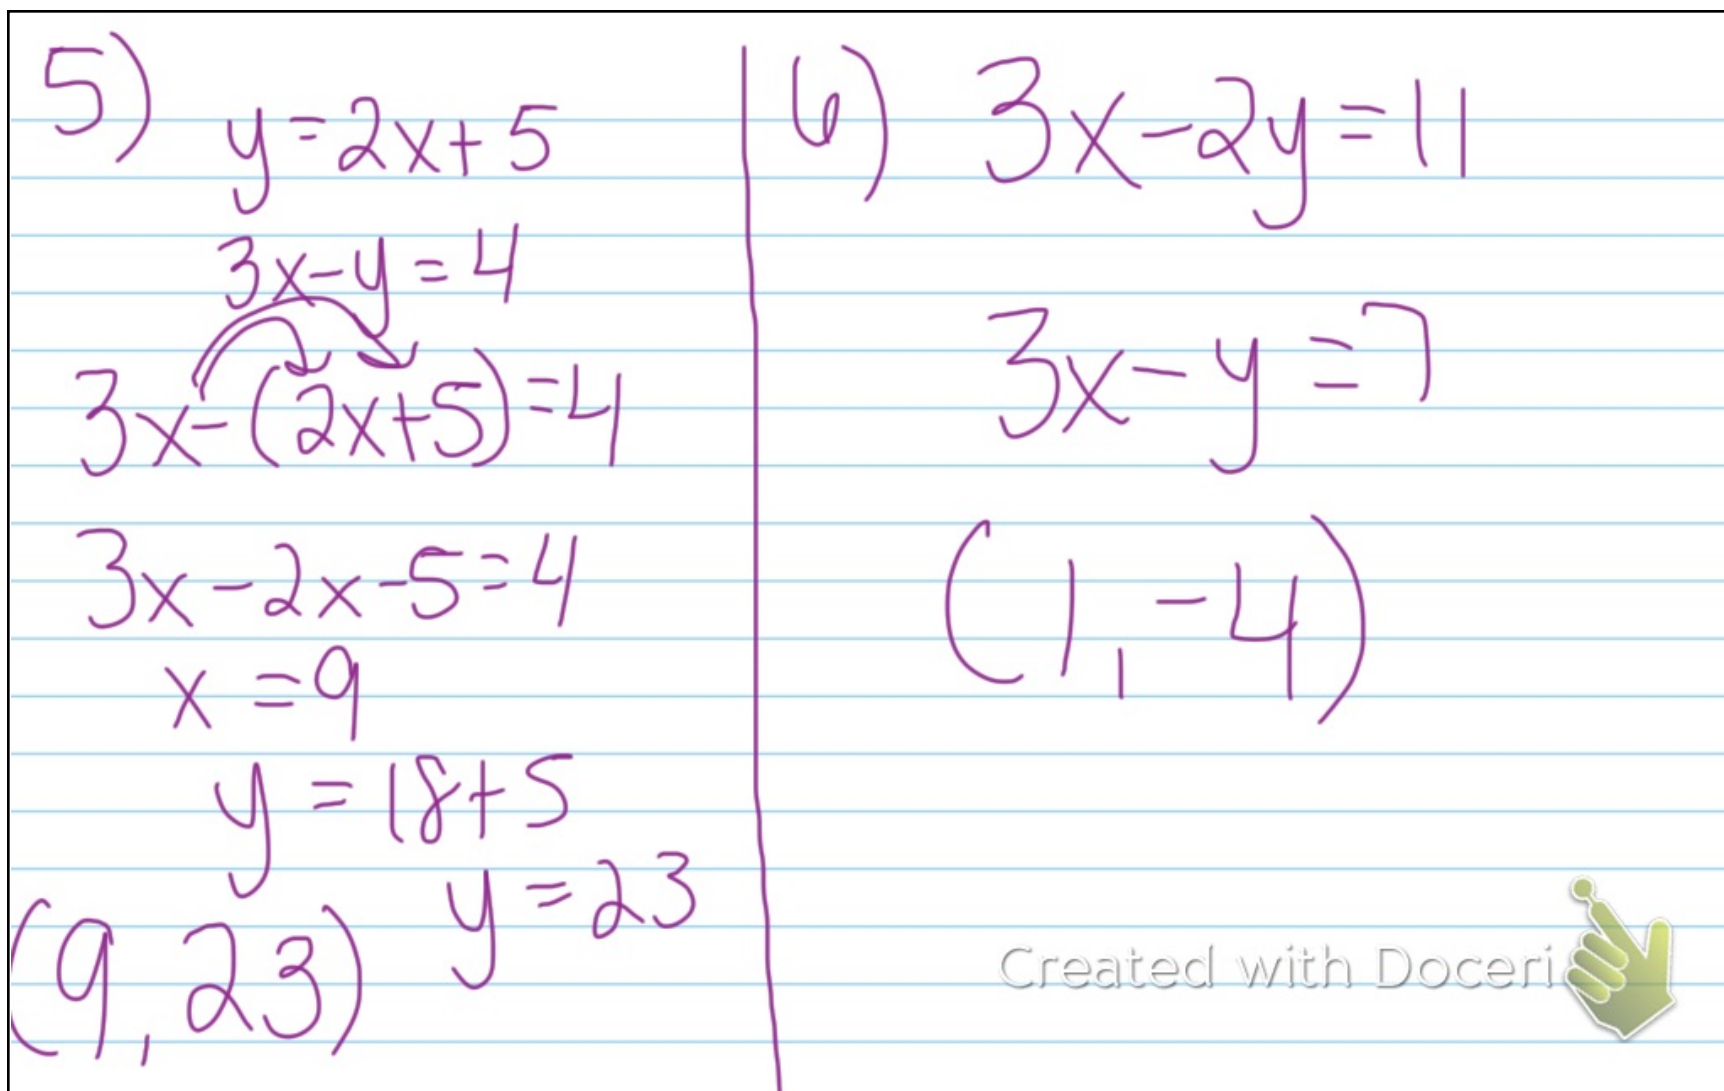 5)
y=2x+5
3x-y=4
3x-(2x+5)=4
3x-2x-5=4
x=9
y=18+5
y=23
(9,23)
6) 3x-2y=11
3x-y=7
(1,-4)
Created with Doceri